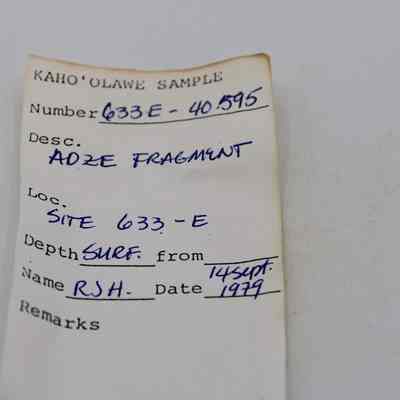 KAHO'OLAWE SAMPLE
Number 633E - 40.595
Desc.
ADZE FRAGMENT
Loc.
SITE 633 - E
Depth SURF. from
Name RJH. Date 14 Sept. 1979
Remarks